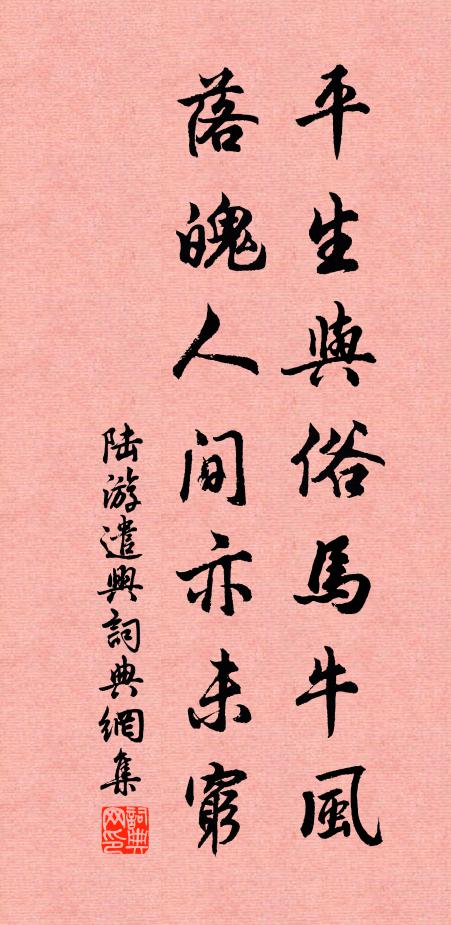 平生與俗馬牛風
落魄人間亦未窮
陆游遣興詞典網集
詞典网印